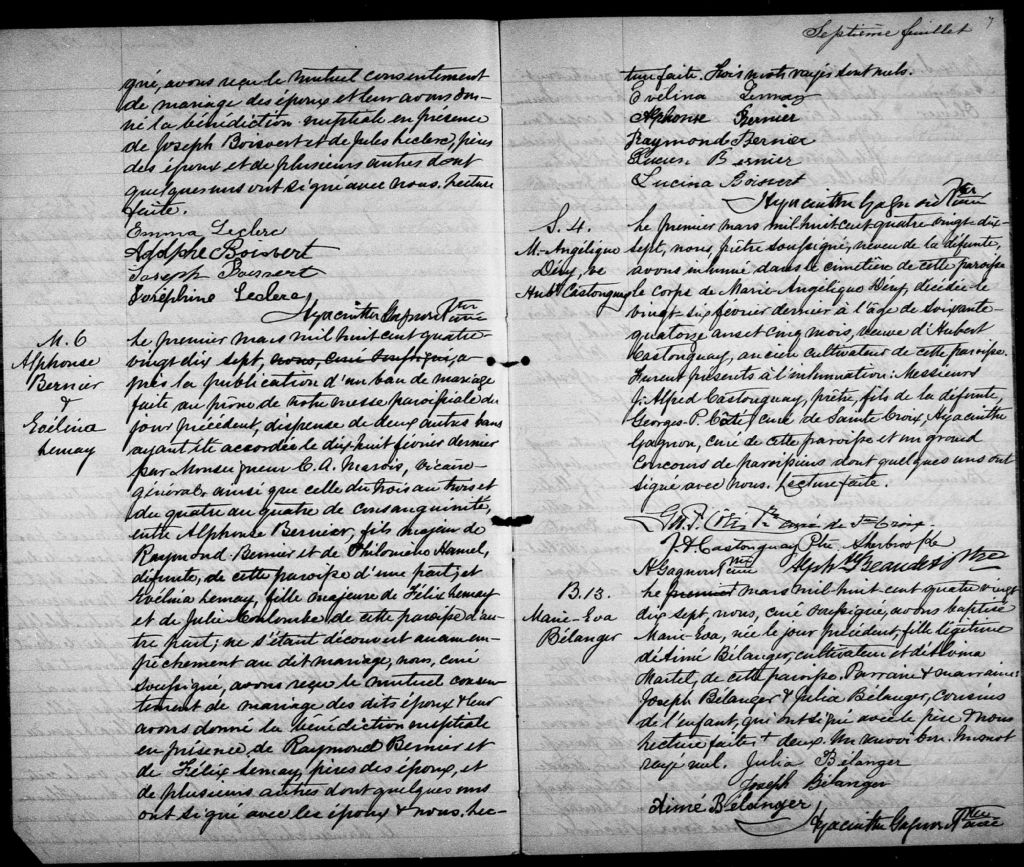 gné, avons reçu le mutuel consentement
de mariage des époux et leur avons don-
né la bénédiction nuptiale en présence
de Joseph Boisvert et de Jules Leclerc, pères
des époux et de plusieurs autres dont
quelques uns ont signé avec nous. Lecture
faite.
Emma Leclerc
Adolphe Boisvert
Joseph Boisvert
Joséphine Leclerc
Hyacinthe Gagnon Ptre curé
M. 6
Alphonse
Bernier
&
Evélina
Lemay
Le premier mars mil huit cent quatre
vingt dix sept, nous, curé soussigné, a-
près la publication d'un ban de mariage
faite au prône de notre messe paroissiale du
jour précédent, dispense de deux autres bans
ayant été accordée le dix huit février dernier
par Monseigneur C. A. Marois, vicaire-
général, ainsi que celle du trois au trois et
du quatre au quatre de consanguinité,
entre Alphonse Bernier, fils majeur de
Raymond Bernier et de Philomène Hamel,
défunte, de cette paroisse d'une part; et
Evélina Lemay, fille majeure de Félix Lemay
et de Julie Colombe de cette paroisse d'au-
tre part; ne s'étant découvert aucun em-
pêchement au dit mariage, nous, curé
soussigné, avons reçu le mutuel consen-
tement de mariage des dits époux & leur
avons donné la bénédiction nuptiale
en présence de Raymond Bernier et
de Félix Lemay, pères des époux, et
de plusieurs autres dont quelques uns
ont signé avec les époux & nous. Lec-
Septième feuillet
7
ture faite. Trois mots rayés sont nuls.
Evélina Lemay
Alphonse Bernier
Raymond Bernier
Lucien Bernier
Lucina Boisvert
Hyacinthe Gagnon Ptre curé
S. 4.
M. Angélique
Déry, ve
Hubt Castonguay
Le premier mars mil huit cent quatre vingt dix-
sept, nous, prêtre soussigné, neveu de la défunte,
avons inhumé dans le cimetière de cette paroisse
le corps de Marie Angélique Déry, décédée le
vingt six février dernier à l'âge de soixante-
quatorze ans et cinq mois, veuve d'Hubert
Castonguay, ancien cultivateur de cette paroisse.
Furent présents à l'inhumation: Messieurs
J. Alfred Castonguay, prêtre, fils de la défunte,
Georges P. Côté, curé de Sainte Croix, Hyacinthe
Gagnon, curé de cette paroisse et un grand
concours de paroissiens dont quelques uns ont
signé avec nous. Lecture faite.
Côté Ptre curé de Ste Croix.
J. A. Castonguay Ptre Sherbrooke
H Gagnon Ptre curé Alph. Beaudet Ptre
B. 13.
Marie-Eva
Bélanger
Le premier mars mil huit cent quatre vingt
dix sept, nous, curé soussigné, avons baptisé
Marie-Eva, née le jour précédent, fille légitime
d'Aimé Bélanger, cultivateur et de
Martel, de cette paroisse. Parrain & marraine:
Joseph Bélanger & Julia Bélanger, cousins
de l'enfant, qui ont signé avec le père & nous
Lecture faite + deux. Un renvoi bon. Un mot
rayé nul. Julia Bélanger
Joseph Bélanger
Aimé Bélanger
Hyacinthe Gagnon Ptre curé